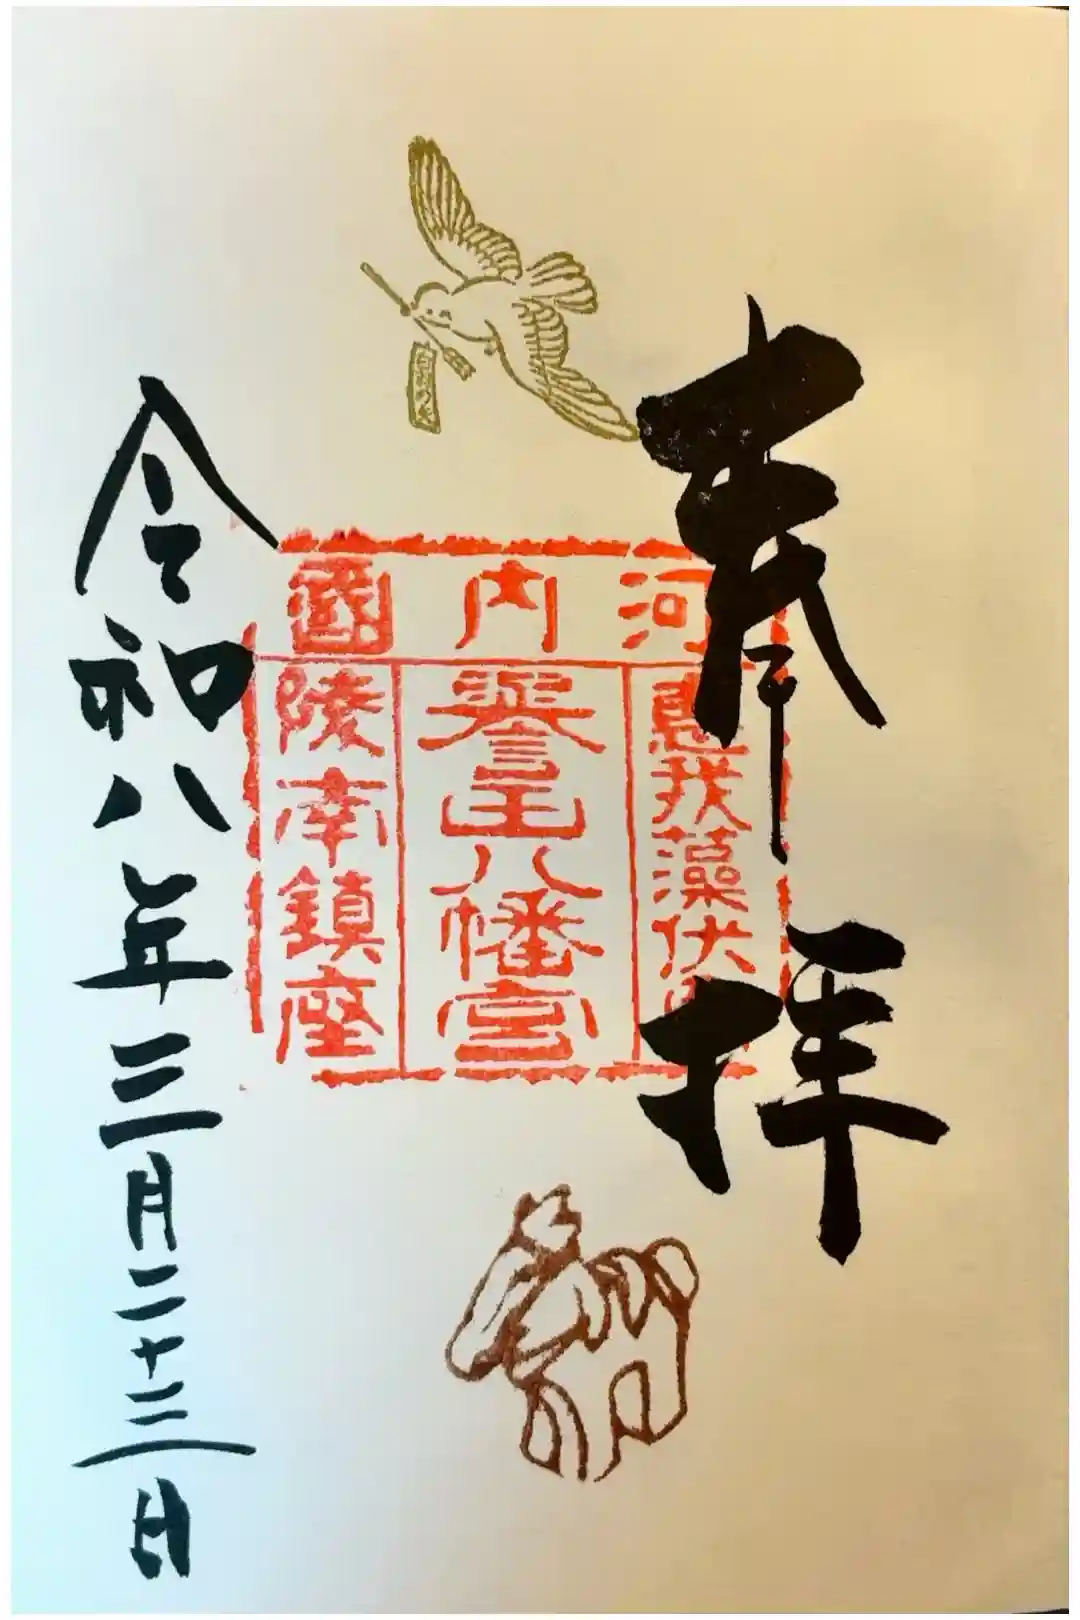 奉拝
河内國
惠我藻伏
譽田八幡宮
陵南鎮座
令和八年三月二十三日